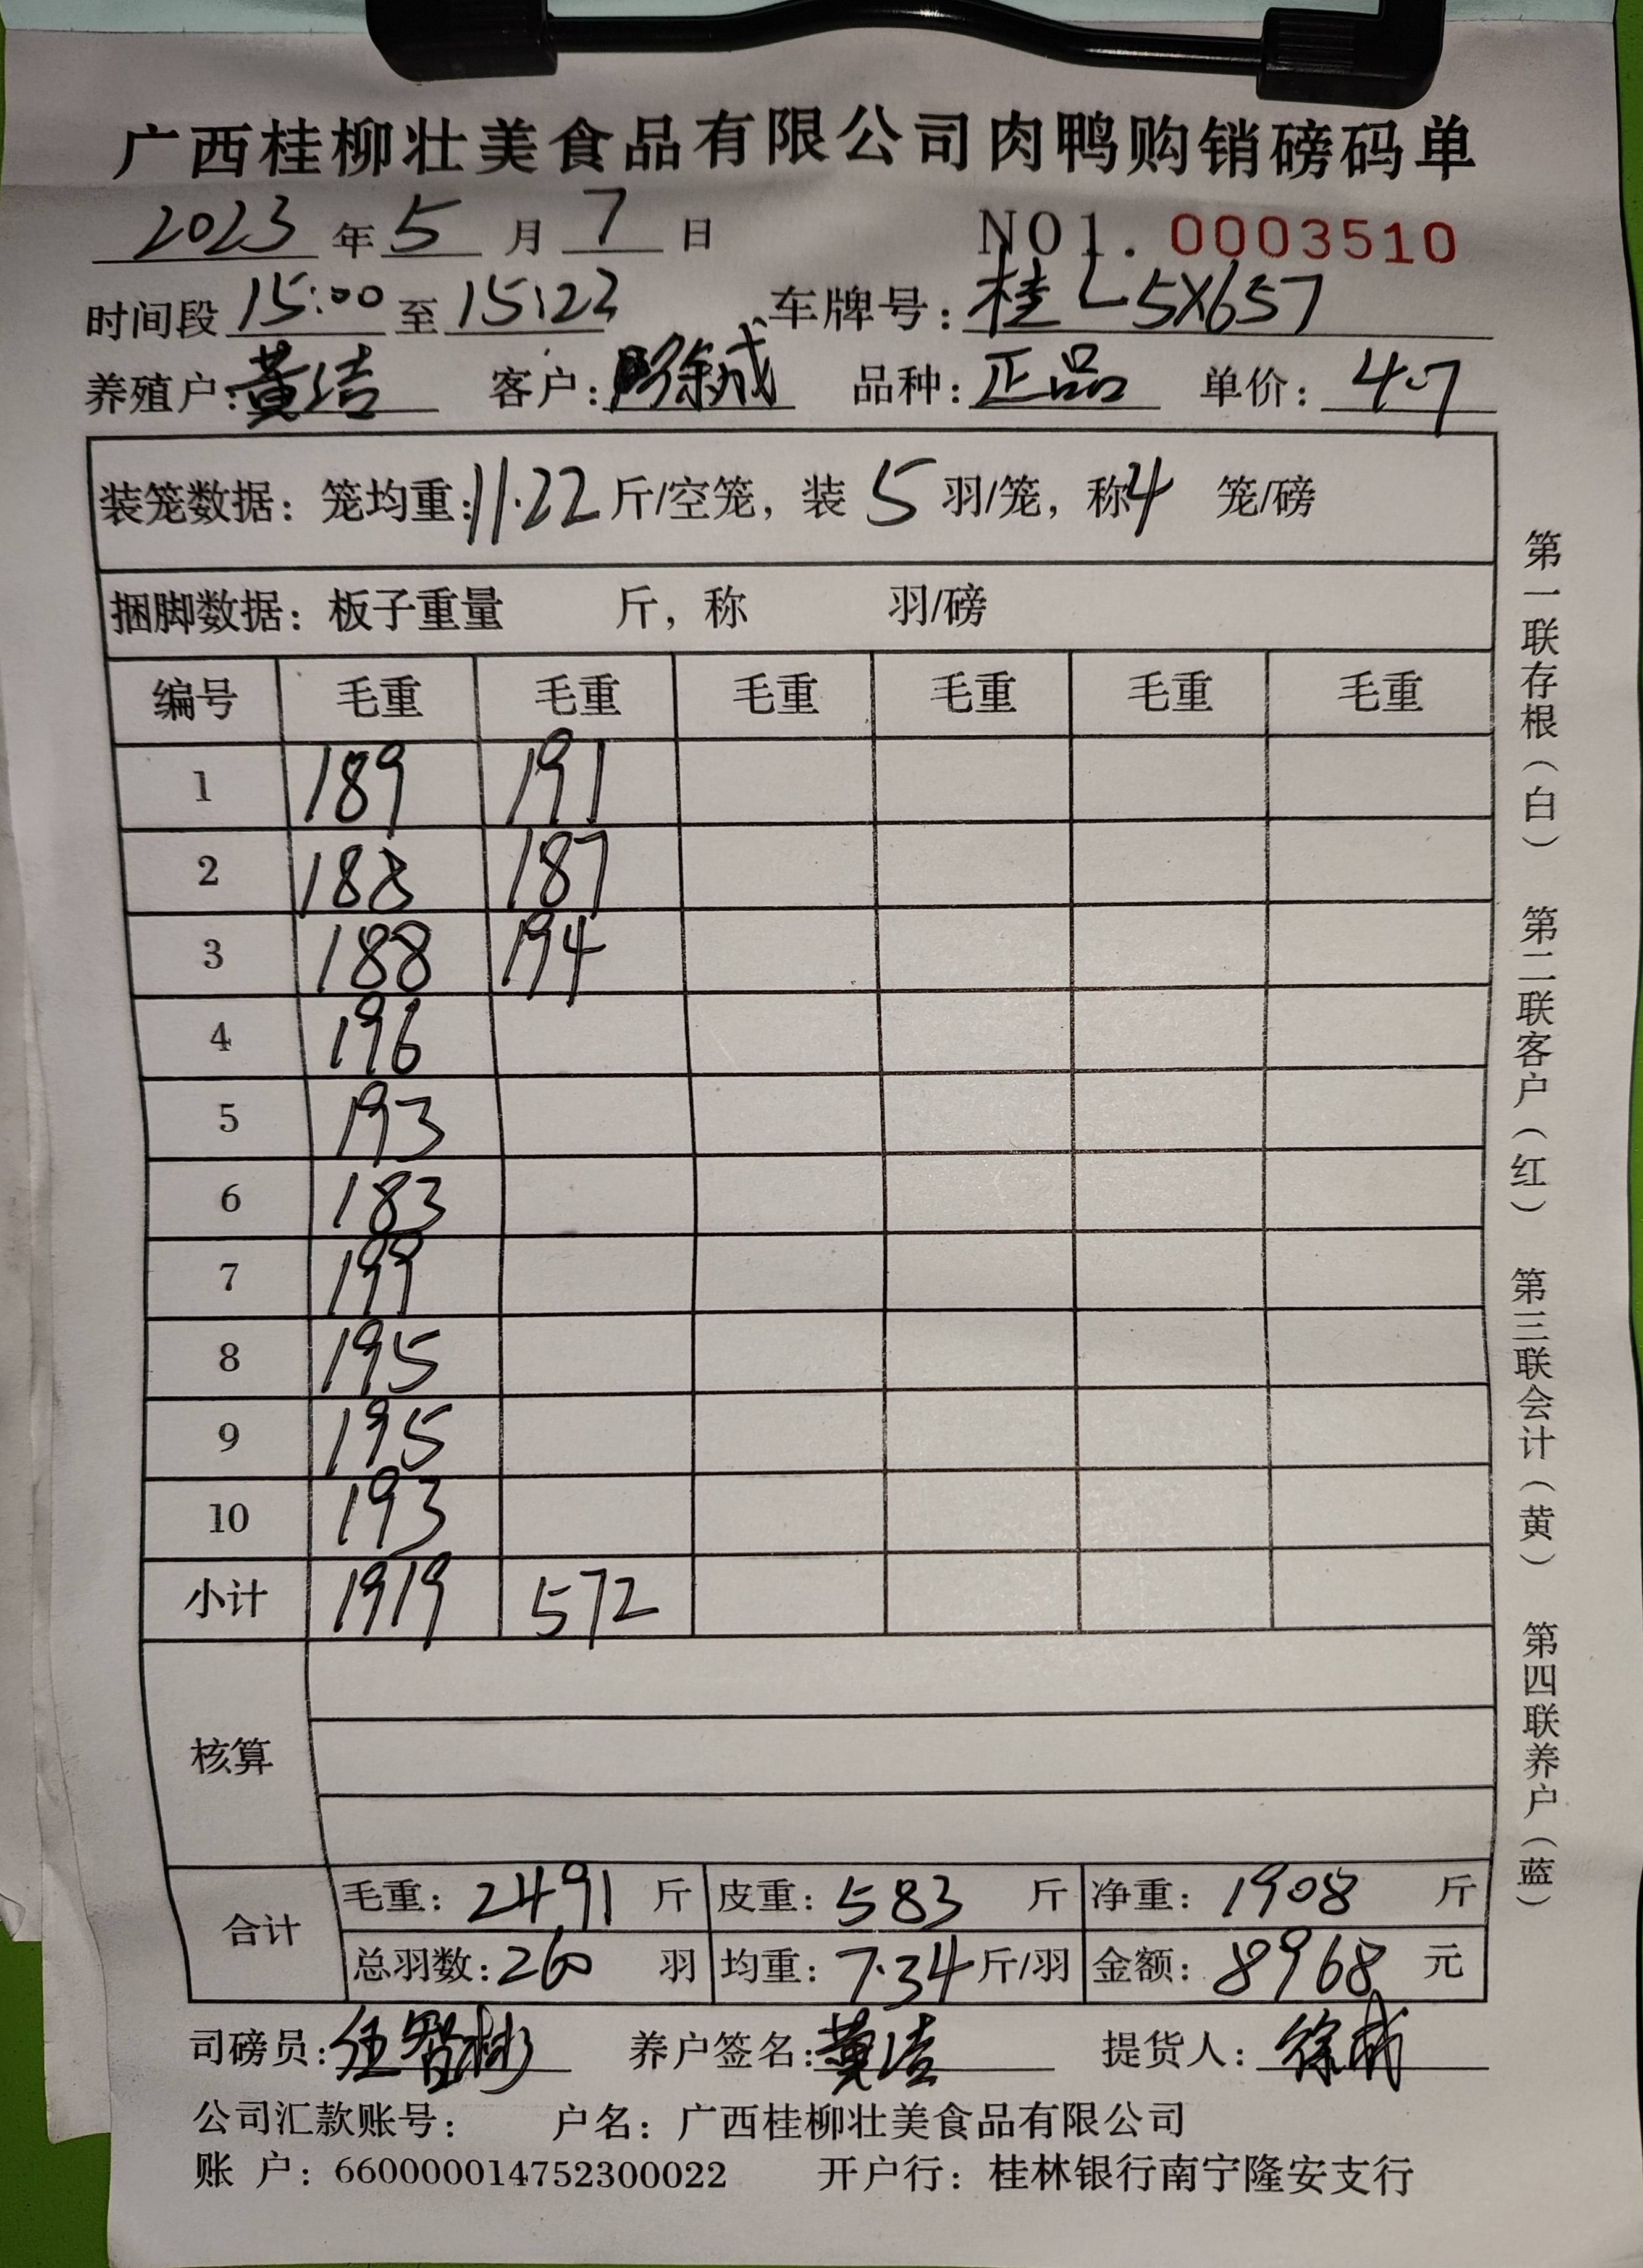 广西桂柳壮美食品有限公司肉鸭购销磅码单
2023 年 5 月 7 日 NO1. 0003510
时间段 15:00 至 15:22 车牌号: 桂L5X657
养殖户: 黄洁 客户: 徐成 品种: 正品 单价: 4.7
装笼数据: 笼均重: 11.22 斤/空笼, 装 5 羽/笼, 称 4 笼/磅
捆脚数据: 板子重量 斤, 称 羽/磅
编号 毛重 毛重 毛重 毛重 毛重 毛重
1 189 191
2 188 187
3 188 194
4 196
5 193
6 183
7 199
8 195
9 195
10 193
小计 1919 572
核算
合计 毛重: 2491 斤 皮重: 583 斤 净重: 1908 斤
总羽数: 260 羽 均重: 7.34 斤/羽 金额: 8968 元
司磅员: 伍智彬 养户签名: 黄洁 提货人: 徐成
公司汇款账号: 户名: 广西桂柳壮美食品有限公司
账 户: 660000014752300022 开户行: 桂林银行南宁隆安支行
第一联存根(白) 第二联客户(红) 第三联会计(黄) 第四联养户(蓝)